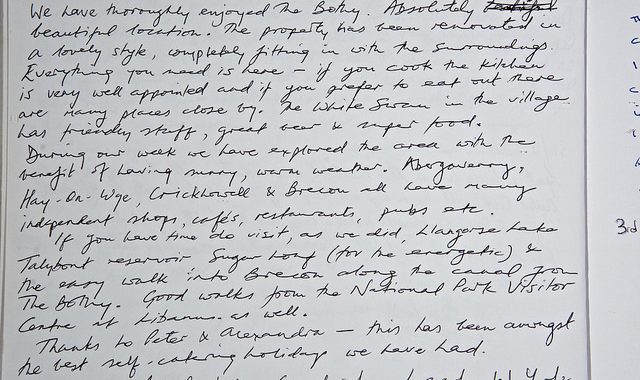 We have thoroughly enjoyed The Bothy. Absolutely
beautiful location. The property has been renovated in
a lovely style, completely fitting in with the surroundings.
Everything you need is here – if you cook the kitchen
is very well appointed and if you prefer to eat out there
are many places close by. The White Swan in the village
has friendly staff, great beer & super food.
During our week we have explored the area with the
benefit of having sunny, warm weather. Abergavenny,
Hay-On-Wye, Crickhowell & Brecon all have many
independent shops, cafés, restaurants, pubs etc.
If you have time do visit, as we did, Llangorse Lake
Talybont reservoir Sugar Loaf (for the energetic) &
the easy walk into Brecon along the canal from
The Bothy. Good walks from the National Park Visitor
Centre at Libanus as well.
Thanks to Peter & Alexandra – this has been amongst
the best self-catering holidays we have had.
3rd